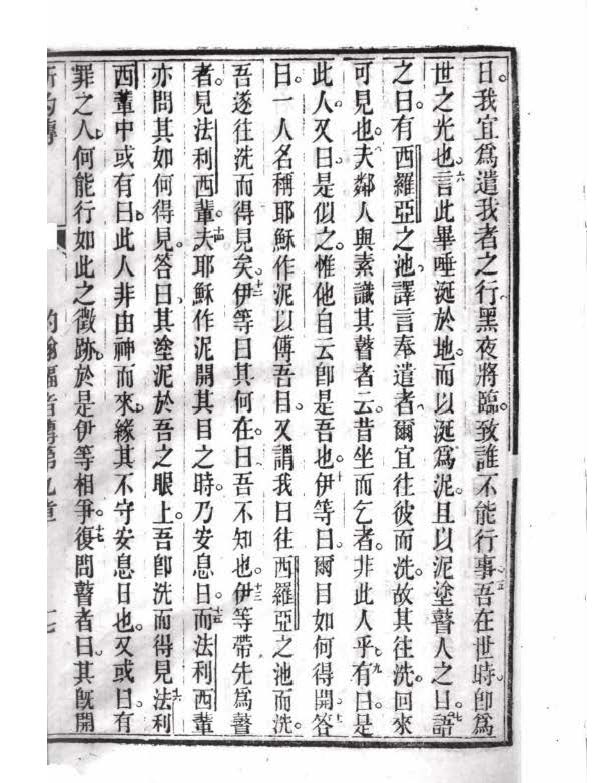 日我宜爲遣我者之行黑夜將臨致誰不能行事五吾在世時卽爲
世之光也六言此畢唾涎於地而以涎爲泥且以泥塗瞽人之目七語
之曰有西羅亞之池譯言奉遣者爾宜往彼而洗故其往洗回來
可見也八夫鄰人與素識其瞽者云昔坐而乞者非此人乎九有曰是
此人又曰是似之惟他自云卽是吾也十伊等曰爾目如何得開十一答
曰一人名稱耶穌作泥以傅吾目又謂我曰往西羅亞之池而洗
吾遂往洗而得見矣十二伊等曰其何在曰吾不知也十三伊等帶先爲瞽
者見法利西輩十四夫耶穌作泥開其目之時乃安息日十五而法利西輩
亦問其如何得見答曰其塗泥於吾之眼上吾卽洗而得見十六法利
西輩中或有曰此人非由神而來緣其不守安息日也又或曰有
罪之人何能行如此之徵跡於是伊等相爭十七復問瞽者曰其旣開
約翰福音傳第九章